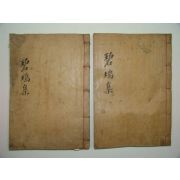 碧塢集
碧塢集